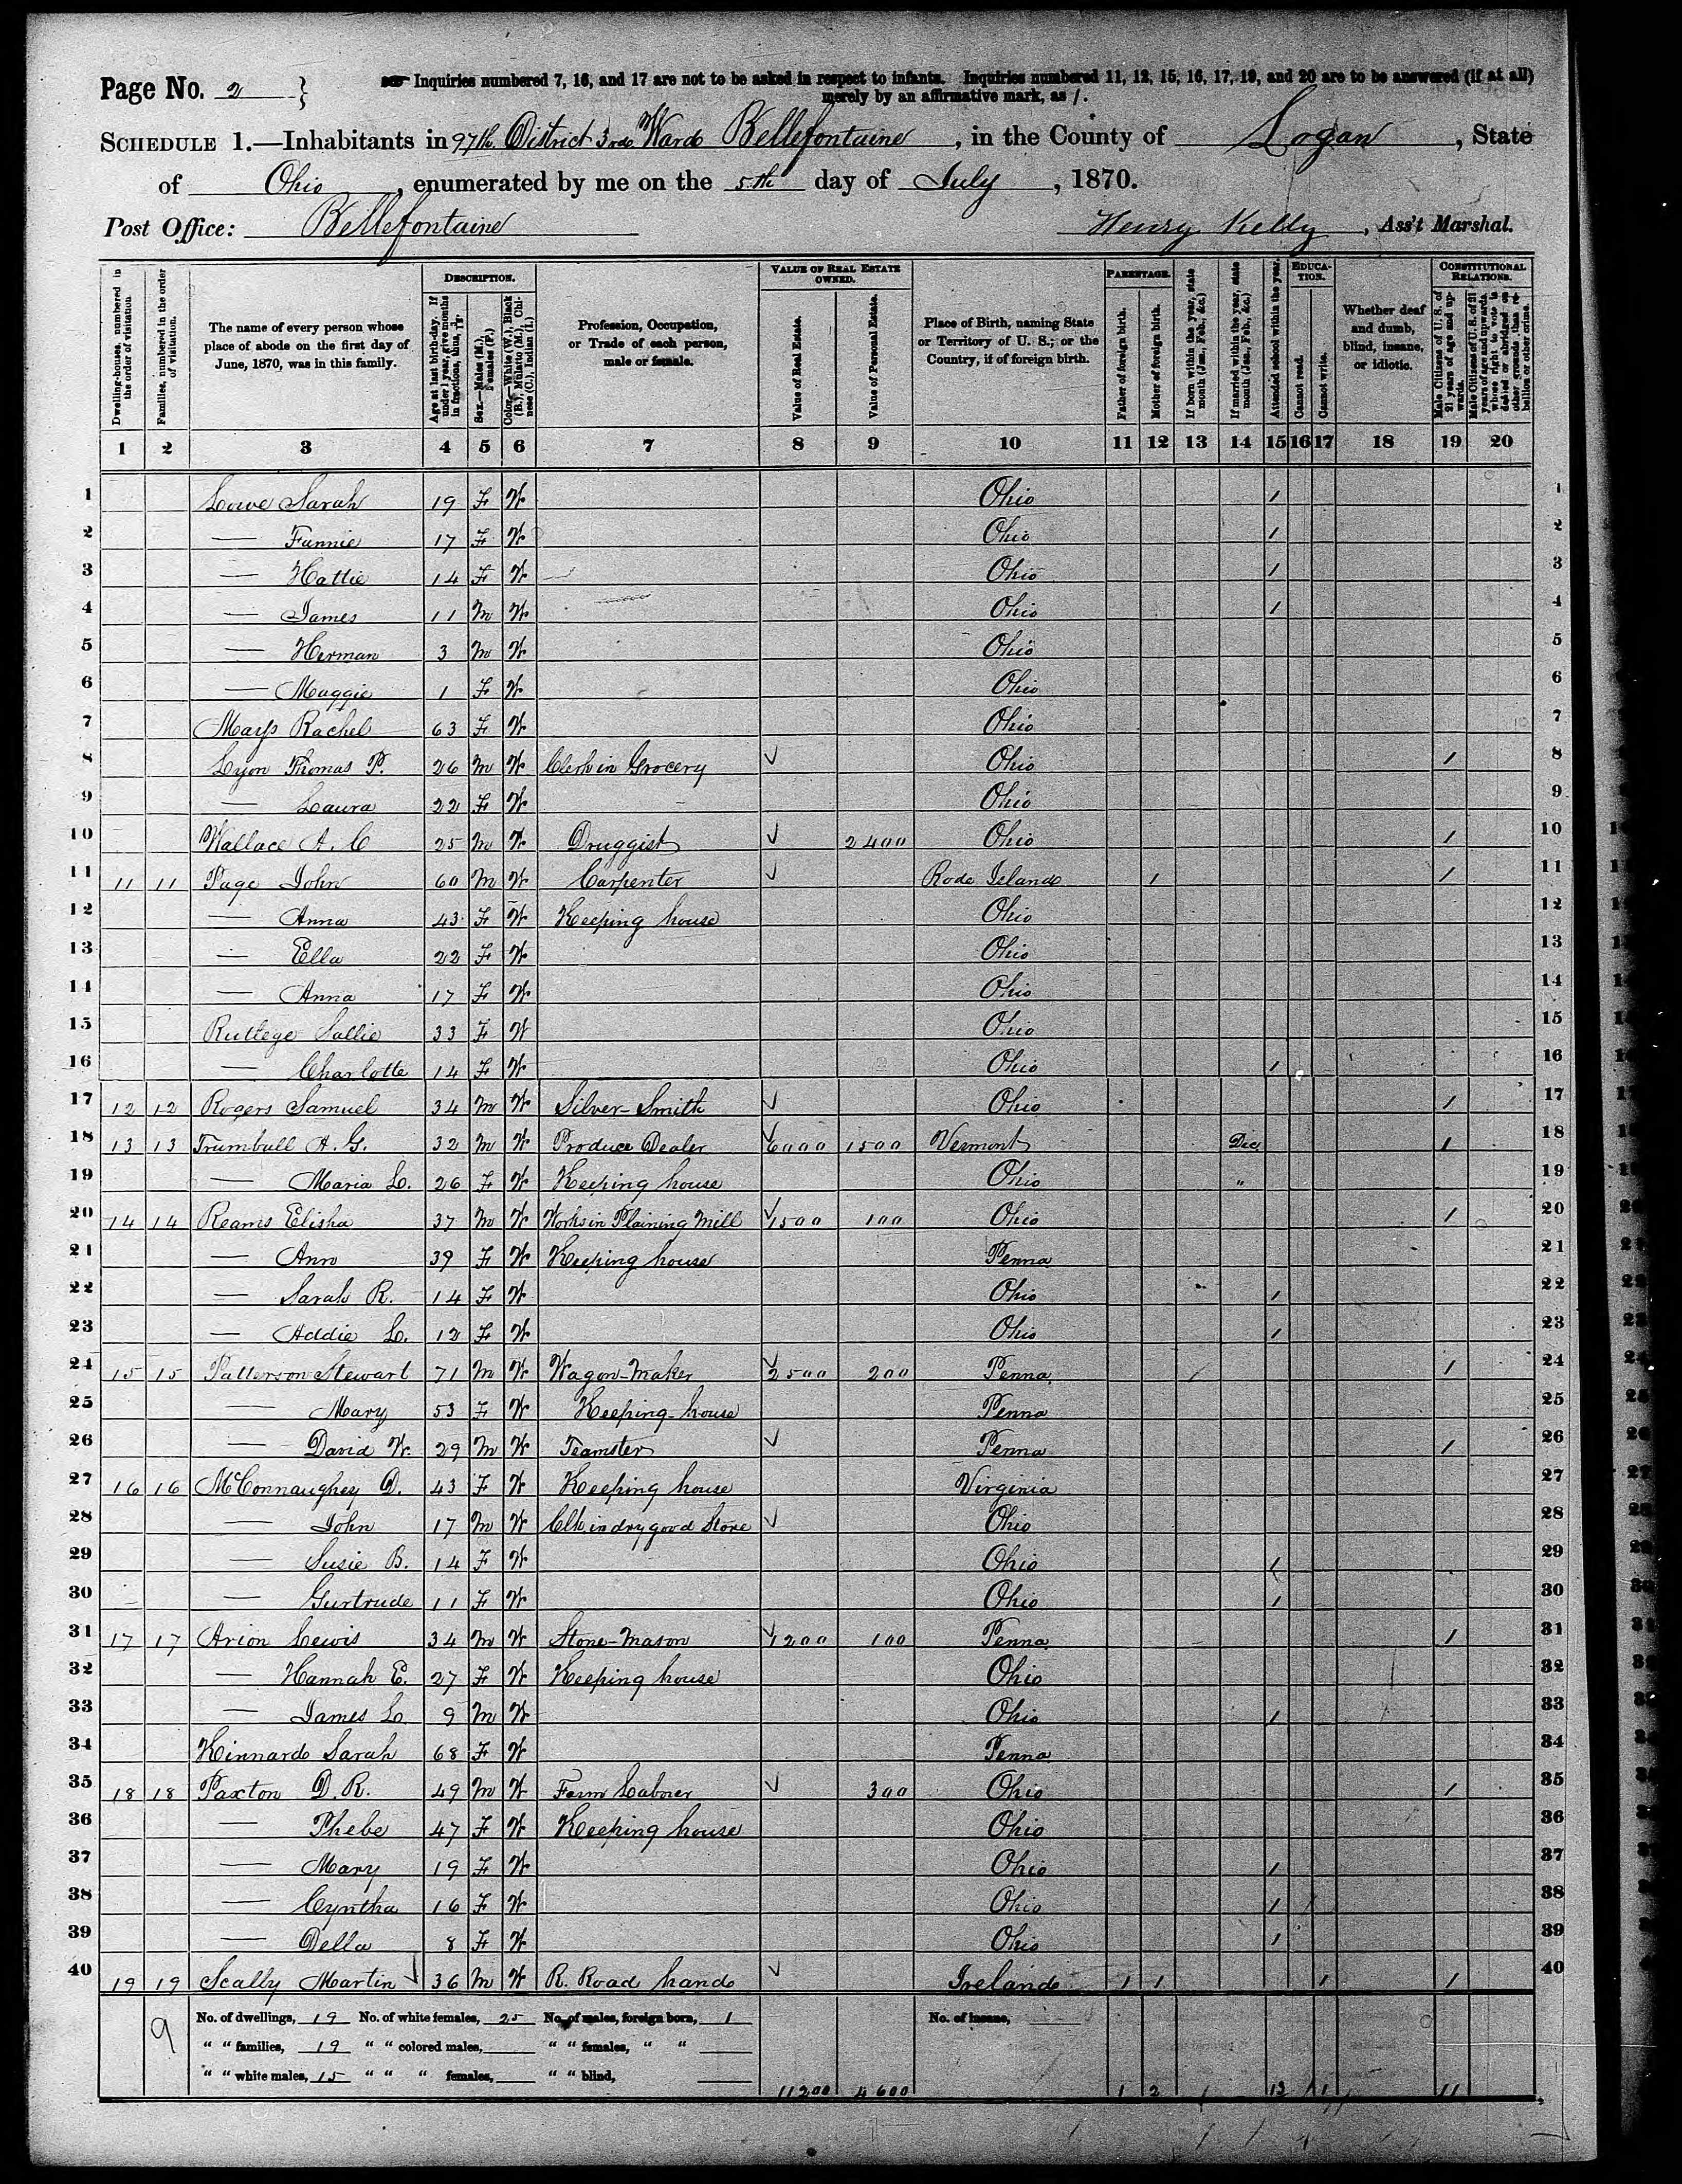 Page No. 2 } Inquiries numbered 7, 16, and 17 are not to be asked in respect to infants. Inquiries numbered 11, 12, 15, 16, 17, 19, and 20 are to be answered (if at all)
merely by an affirmative mark, as /.
SCHEDULE 1.—Inhabitants in 97th District 3rd Ward Bellefontaine, in the County of Logan, State
of Ohio, enumerated by me on the 5th day of July, 1870.
Post Office: Bellefontaine Henry Kelly, Ass't Marshal.
Dwelling-houses, numbered in the order of visitation.
Families, numbered in the order of visitation.
The name of every person whose place of abode on the first day of June, 1870, was in this family.
DESCRIPTION.
Age at last birth-day. If under 1 year, give months in fractions, thus,
Sex.—Males (M.), Females (F.)
Color.—White (W.), Black (B.), Mulatto (M.), Chinese (C.), Indian (I.)
Profession, Occupation, or Trade of each person, male or female.
VALUE OF REAL ESTATE OWNED.
Value of Real Estate.
Value of Personal Estate.
Place of Birth, naming State or Territory of U. S.; or the Country, if of foreign birth.
PARENTAGE.
Father of foreign birth.
Mother of foreign birth.
If born within the year, state month (Jan., Feb., &c.)
If married within the year, state month (Jan., Feb., &c.)
Attended school within the year.
EDUCATION.
Cannot read.
Cannot write.
Whether deaf and dumb, blind, insane, or idiotic.
CONSTITUTIONAL RELATIONS.
Male Citizens of U. S. of 21 years of age and upwards.
Male Citizens of U. S. of 21 years of age and upwards, whose right to vote is denied or abridged on other grounds than rebellion or other crime.
1 2 3 4 5 6 7 8 9 10 11 12 13 14 15 16 17 18 19 20
1 Lowe Sarah 19 F W Ohio / 1
2 — Fannie 17 F W Ohio / 2
3 — Hattie 14 F W Ohio / 3
4 — James 11 M W Ohio / 4
5 — Herman 3 M W Ohio 5
6 — Maggie 1 F W Ohio 6
7 Rachel 63 F W Ohio 7
8 Lyon Thomas P. 26 M W Clerk in Grocery ✓ Ohio / 8
9 — Laura 22 F W Ohio 9
10 Wallace A. C 25 M W Druggist ✓ 2400 Ohio / 10
11 11 11 Page John 60 M W Carpenter ✓ Rode Island / / 11
12 — Anna 43 F W Keeping house Ohio 12
13 — Ella 22 F W Ohio 13
14 — Anna 17 F W Ohio 14
15 Rutlege Sallie 33 F W Ohio 15
16 — Charlotte 14 F W Ohio / 16
17 12 12 Rogers Samuel 34 M W Silver-Smith ✓ Ohio / 17
18 13 13 Trumbull A. G. 32 M W Produce Dealer ✓ 6000 1500 Vermont Dec / 18
19 — Maria L. 26 F W Keeping house Ohio " 19
20 14 14 Reams Elisha 37 M W Works in Plaining Mill ✓ 1500 100 Ohio / 20
21 — Ann 39 F W Keeping house Penna 21
22 — Sarah R. 14 F W Ohio / 22
23 — Addie L. 12 F W Ohio / 23
24 15 15 Patterson Stewart 71 M W Wagon-Maker ✓ 2500 200 Penna. / 24
25 — Mary 53 F W Keeping-house Penna 25
26 — David W. 29 M W Teamster ✓ Penna / 26
27 16 16 McConnaughey D. 43 F W Keeping house Virginia 27
28 — John 17 M W Clk in dry good Store ✓ Ohio 28
29 — Susie B. 14 F W Ohio / 29
30 — Gurtrude 11 F W Ohio / 30
31 17 17 Arion Lewis 34 M W Stone-Mason ✓ 1200 100 Penna / 31
32 — Hannah E. 27 F W Keeping house Ohio 32
33 — James L. 9 M W Ohio / 33
34 Kinnard Sarah 68 F W Penna 34
35 18 18 Paxton D. R. 49 M W Farm Laborer ✓ 300 Ohio / 35
36 — Phebe 47 F W Keeping house Ohio 36
37 — Mary 19 F W Ohio / 37
38 — Cyntha 16 F W Ohio / 38
39 — Della 8 F W Ohio / 39
40 19 19 Scally Martin ✓ 36 M W R. Road hand ✓ Ireland / / / / 40
9 No. of dwellings, 19 No. of white females, 25 No. of males, foreign born, 1 No. of insane,
" " families, 19 " " colored males, " " females, " "
" " white males, 15 " " " females, " " blind,
11200 4600 1 2 12 1 11